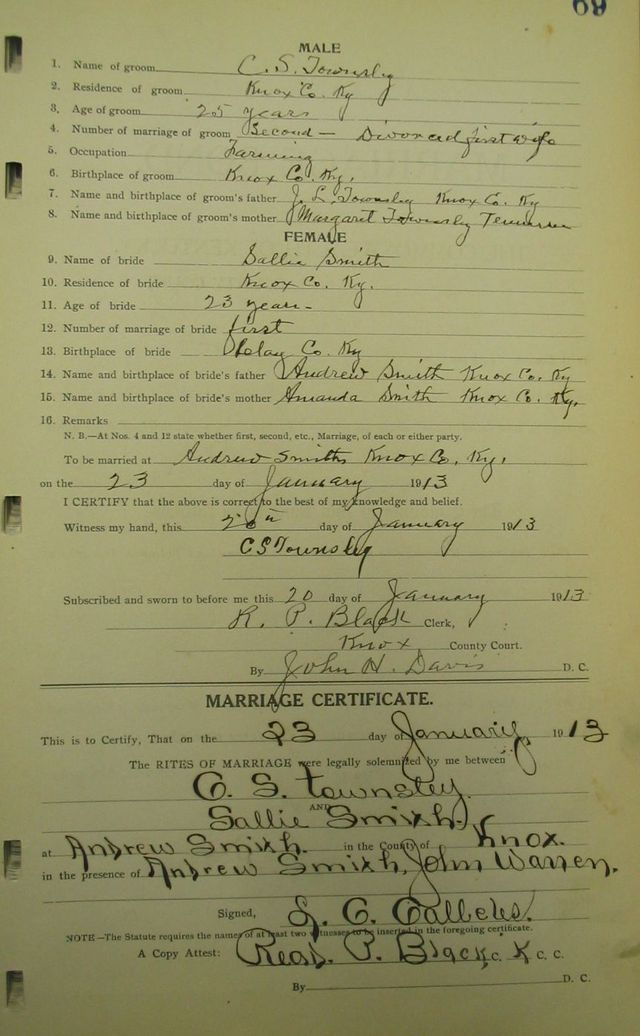 69
MALE
1. Name of groom C. S. Townsley
2. Residence of groom Knox Co. Ky
3. Age of groom 25 years
4. Number of marriage of groom Second — Divorced first wife
5. Occupation Farming
6. Birthplace of groom Knox Co. Ky.
7. Name and birthplace of groom's father J. L. Townsley Knox Co. Ky
8. Name and birthplace of groom's mother Margaret Townsley Tennessee
FEMALE
9. Name of bride Sallie Smith
10. Residence of bride Knox Co. Ky.
11. Age of bride 23 years
12. Number of marriage of bride first
13. Birthplace of bride Clay Co. Ky
14. Name and birthplace of bride's father Andrew Smith Knox Co. Ky
15. Name and birthplace of bride's mother Amanda Smith Knox Co. Ky.
16. Remarks
N. B.—At Nos. 4 and 12 state whether first, second, etc., Marriage, of each or either party.
To be married at Andrew Smiths Knox Co. Ky.
on the 23 day of January 1913
I CERTIFY that the above is correct to the best of my knowledge and belief.
Witness my hand, this 20th day of January 1913
C S Townsley
Subscribed and sworn to before me this 20 day of January 1913
R. P. Black Clerk,
Knox County Court.
By John H. Davis D. C.
MARRIAGE CERTIFICATE.
This is to Certify, That on the 23 day of January, 1913
The RITES OF MARRIAGE were legally solemnized by me between
C. S. Townsley.
AND
Sallie Smith.
at Andrew Smith. in the County of Knox.
in the presence of Andrew Smith, John Warren.
Signed, G. C.
NOTE—The Statute requires the names of at least two witnesses to be inserted in the foregoing certificate.
A Copy Attest: Read. P. Black, C. K C. C.
By D. C.